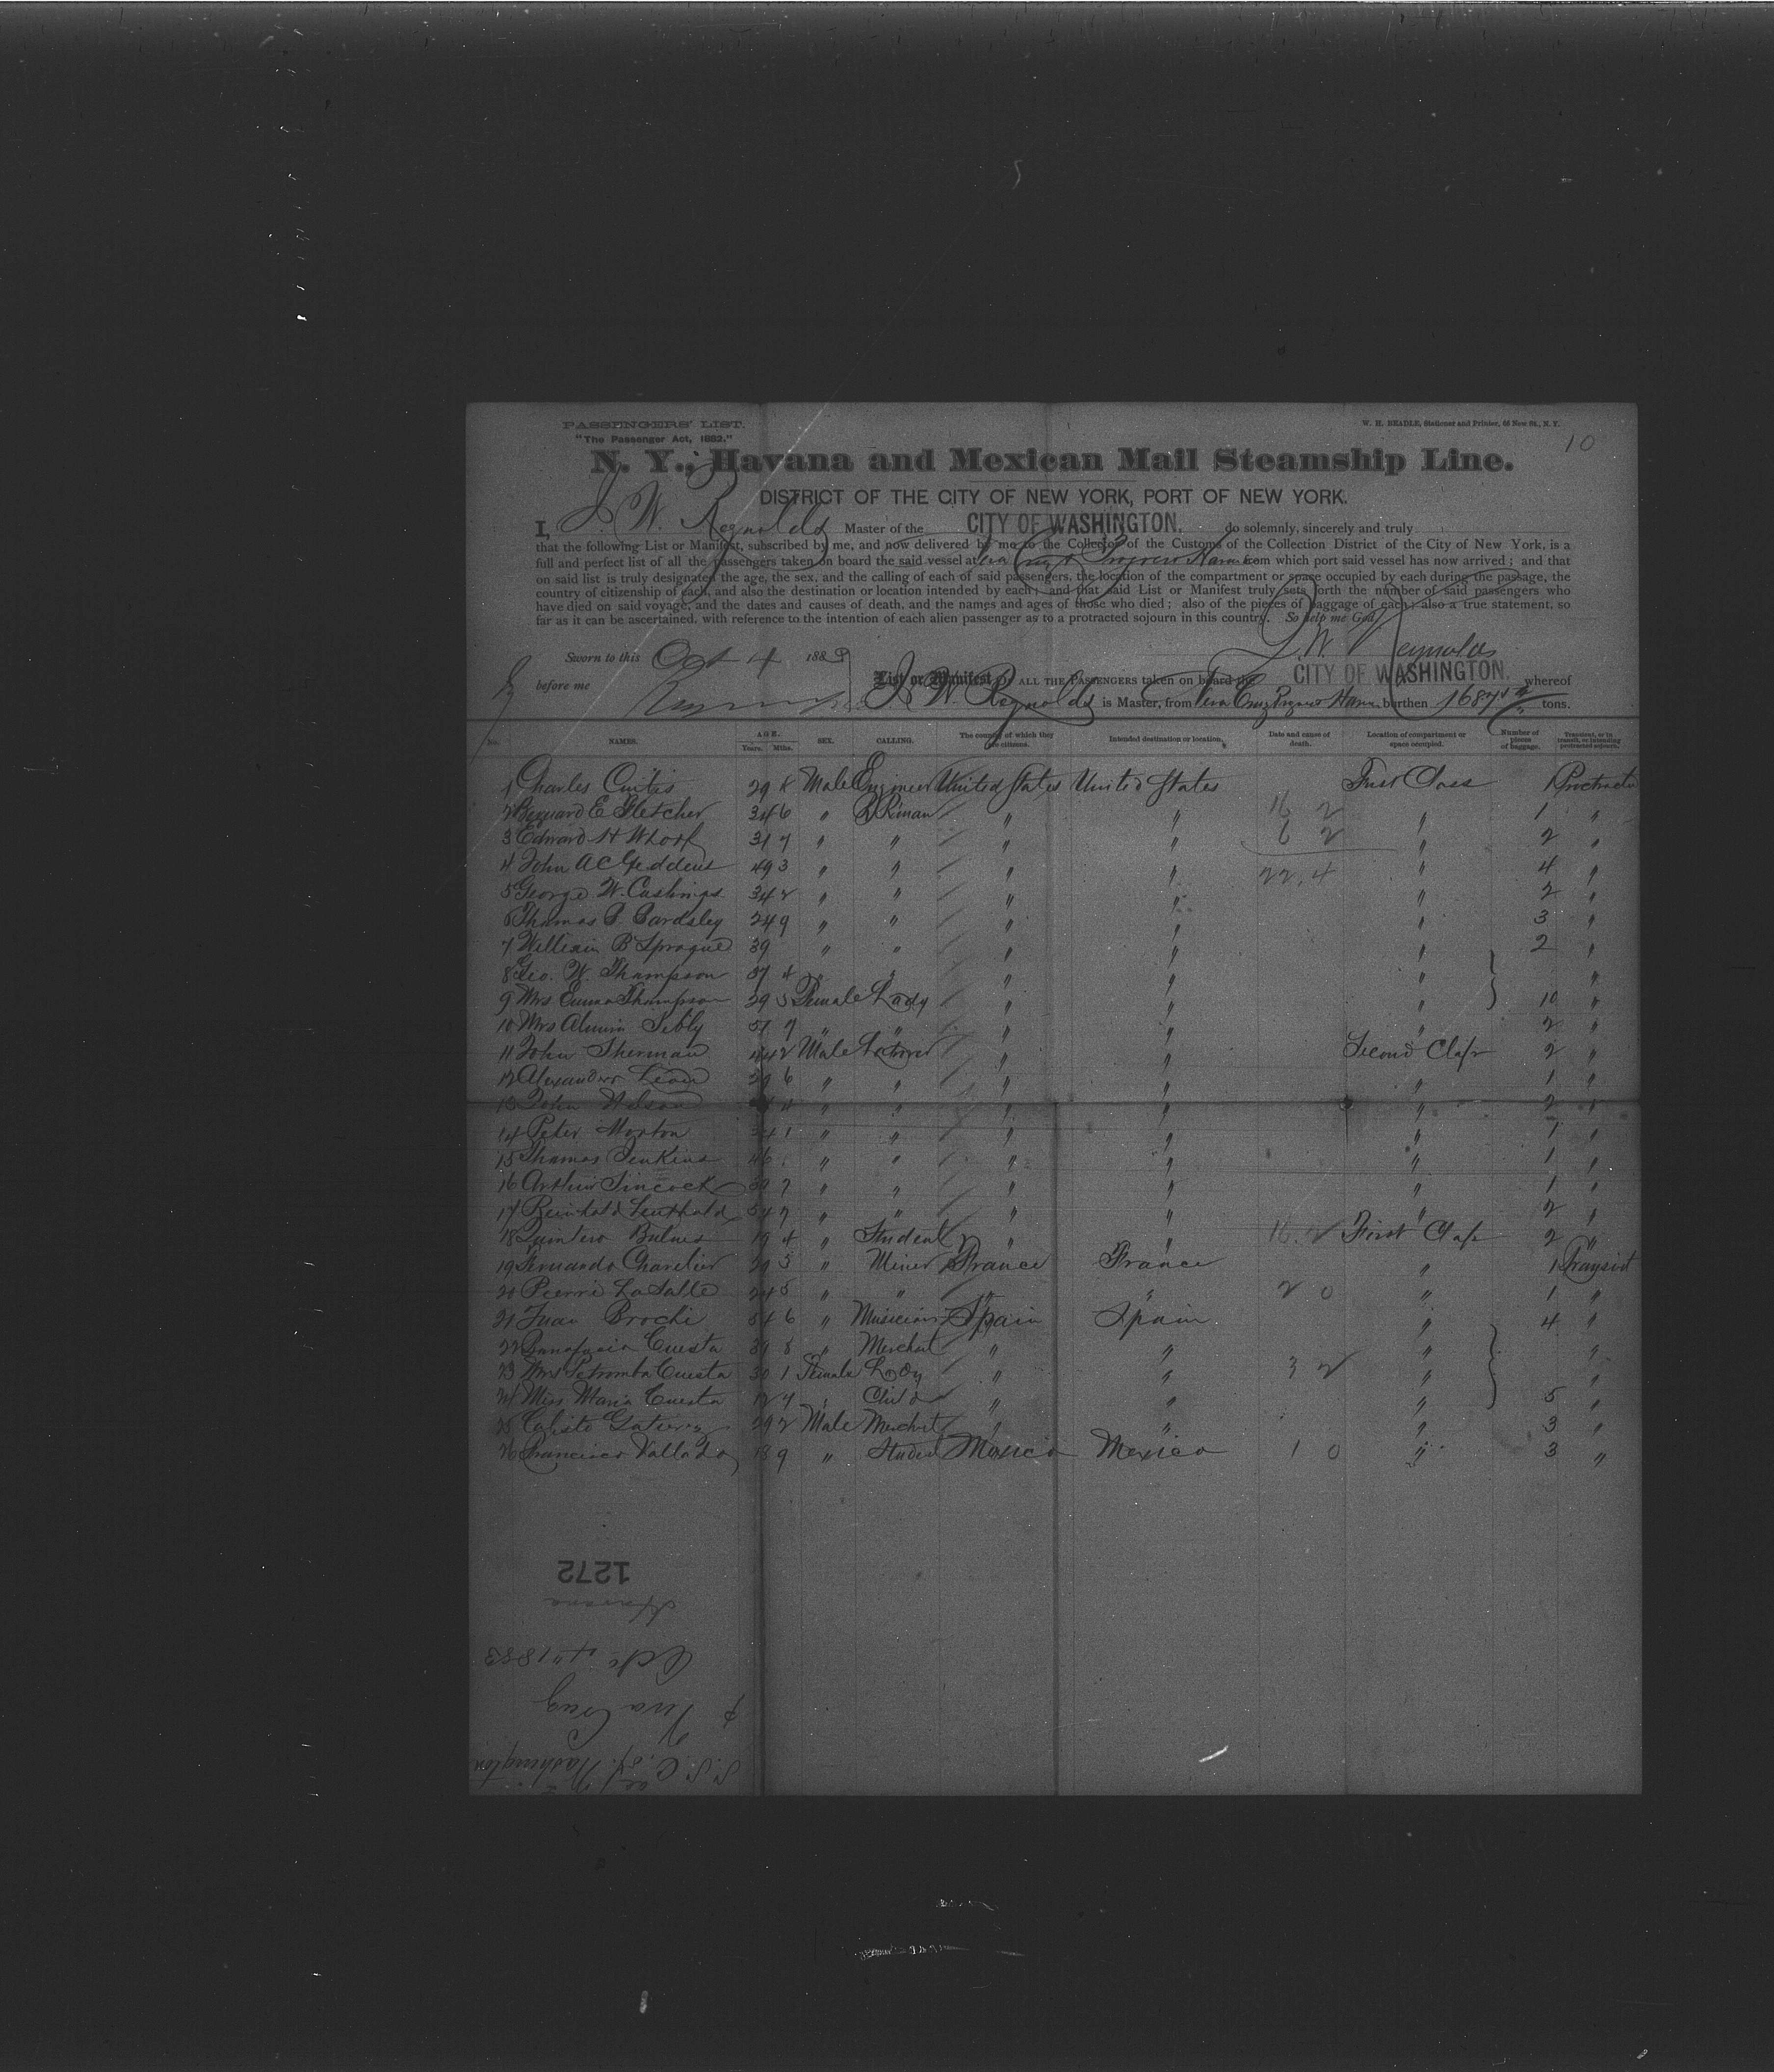 PASSENGERS' LIST.
W. H. BEADLE, Stationer and Printer, 65 New St., N. Y.
"The Passenger Act, 1882."
10
N. Y., Havana and Mexican Mail Steamship Line.
DISTRICT OF THE CITY OF NEW YORK, PORT OF NEW YORK.
I, J. W. Reynolds Master of the CITY OF WASHINGTON. do solemnly, sincerely and truly
that the following List or Manifest, subscribed by me, and now delivered by me to the Collector of the Customs of the Collection District of the City of New York, is a
full and perfect list of all the passengers taken on board the said vessel at Vera Cruz & Progreso Havana from which port said vessel has now arrived; and that
on said list is truly designated the age, the sex, and the calling of each of said passengers, the location of the compartment or space occupied by each during the passage, the
country of citizenship of each, and also the destination or location intended by each; and that said List or Manifest truly sets forth the number of said passengers who
have died on said voyage, and the dates and causes of death, and the names and ages of those who died; also of the pieces of baggage of each; also a true statement, so
far as it can be ascertained, with reference to the intention of each alien passenger as to a protracted sojourn in this country. So help me God
J. W. Reynolds
Sworn to this Oct 4 188
before me
List or Manifest OF ALL THE PASSENGERS taken on board the CITY OF WASHINGTON. whereof
J. W. Reynolds is Master, from Vera Cruz Progreso Havana burthen 1687 tons.
No. NAMES. AGE. Years. Mths. SEX. CALLING. The country of which they are citizens. Intended destination or location. Date and cause of death. Location of compartment or space occupied. Number of pieces of baggage. Transient, or in transit, or intending protracted sojourn.
1 Charles Curtis 29 Male Engineer United States United States First Class 1
2 E Fletcher 34 6 " RRman " " 16 2 " 1 "
3 Edward H Whorf 31 7 " " " " 6 2 " 2 "
4 John A C Geddens 49 3 " " " " 22.4 " 4 "
5 George W. Cushings 34 2 " " " " " 2 "
6 Thomas Bardsley 24 9 " " " " " 3 "
7 William B Sprague 39 " " " " " 2 "
8 Geo. W. Thompson 37 4 " " " " " "
9 Mrs Emma Thompson 29 5 Female Lady " " " 10 "
10 Mrs 51 7 " " " " " 2 "
11 John Sherman 44 2 Male " " Second Class 2 "
12 Alexander 6 " " " " " 1 "
13 John 4 " " " " " 2 "
14 Peter Morton 1 " " " " " 1 "
15 Thomas Jenkins 46 " " " " " 1 "
16 Arthur Sincock 7 " " " " " 1 "
17 Reinhold 7 " " " " " 2 "
18 Quintero Bulnes 19 4 " Student " " 16.2 First Class 2 "
19 Fernando 29 5 " Miner France France " 1 Transit
20 Pierre LaSalle 24 8 " " " " 2 0 " 1 "
21 Juan Brochi 54 6 " Musician Spain Spain " 4 "
22 Cuesta 39 8 " Merchat " " " "
23 Mrs Cuesta 30 1 Female Lady " " 3 2 " "
24 Miss Maria Cuesta 12 4 " Child " " " 5 "
25 Calisto 29 2 Male Merchat " " " 3 "
26 Francisco 18 9 " Student Mexico Mexico 1 0 " 3 "
1272
Havana
Oct 4" 1883
& Vera Cruz
S.S. C. of Washington